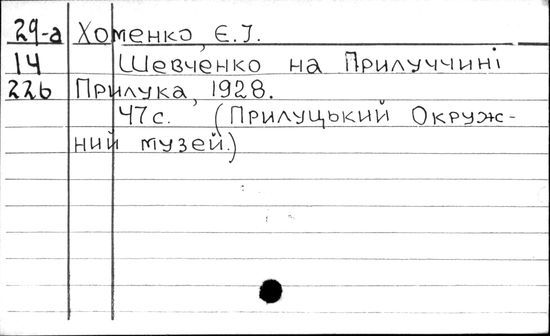 29-а Хоменко, Є.І.
14 Шевченко на Прилуччині
226 Прилука, 1928.
47с. (Прилуцький Окруж-
ний музей.)